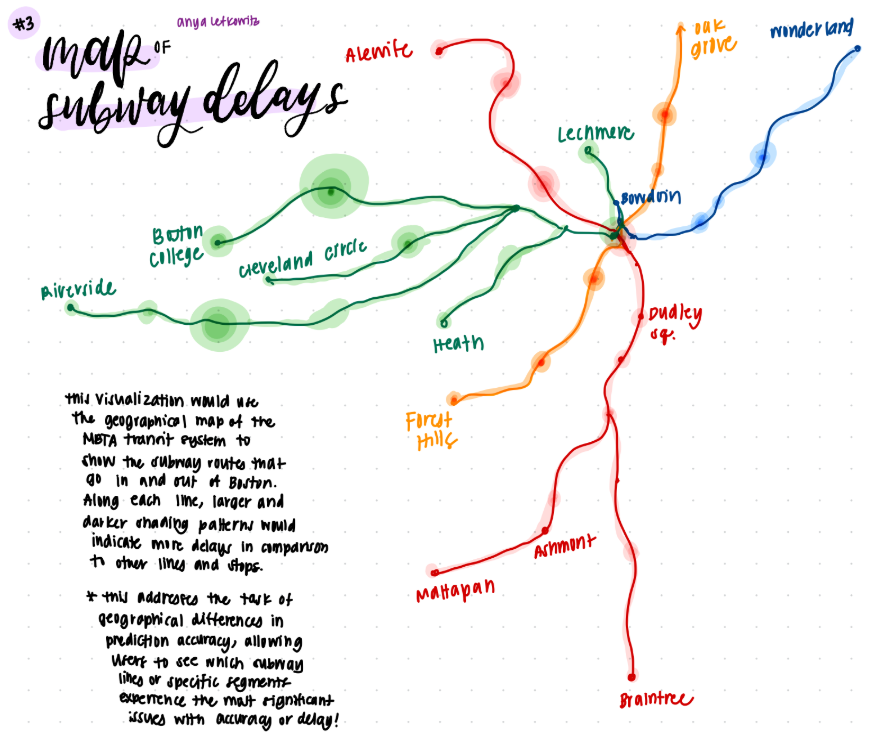 #3
anya letkowitz
map OF
subway delays
Alewife
oak
grove
wonderland
Lechmere
Bowdoin
Boston
College
Cleveland Circle
Riverside
Heath
Dudley
sq.
Forest
Hills
Ashmont
Mattapan
Braintree
this visualization would use
the geographical map of the
MBTA transit system to
show the subway routes that
go in and out of Boston.
Along each line, larger and
darker shading patterns would
indicate more delays in comparison
to other lines and stops.
* this addresses the task of
geographical differences in
prediction accuracy, allowing
users to see which subway
lines or specific segments
experience the most significant
issues with accuracy or delay!